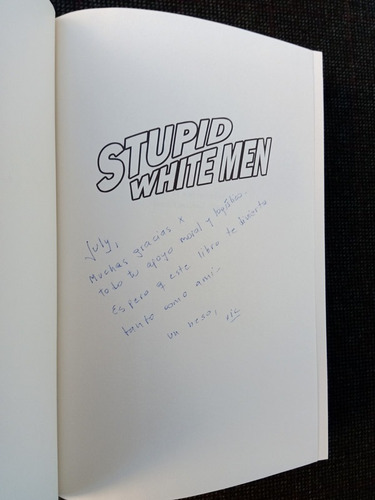 STUPID
WHITE MEN
July,
Muchas gracias x
todo tu apoyo moral y logístico.
Espero q este libro te divierta
tanto como a mí.
un beso,